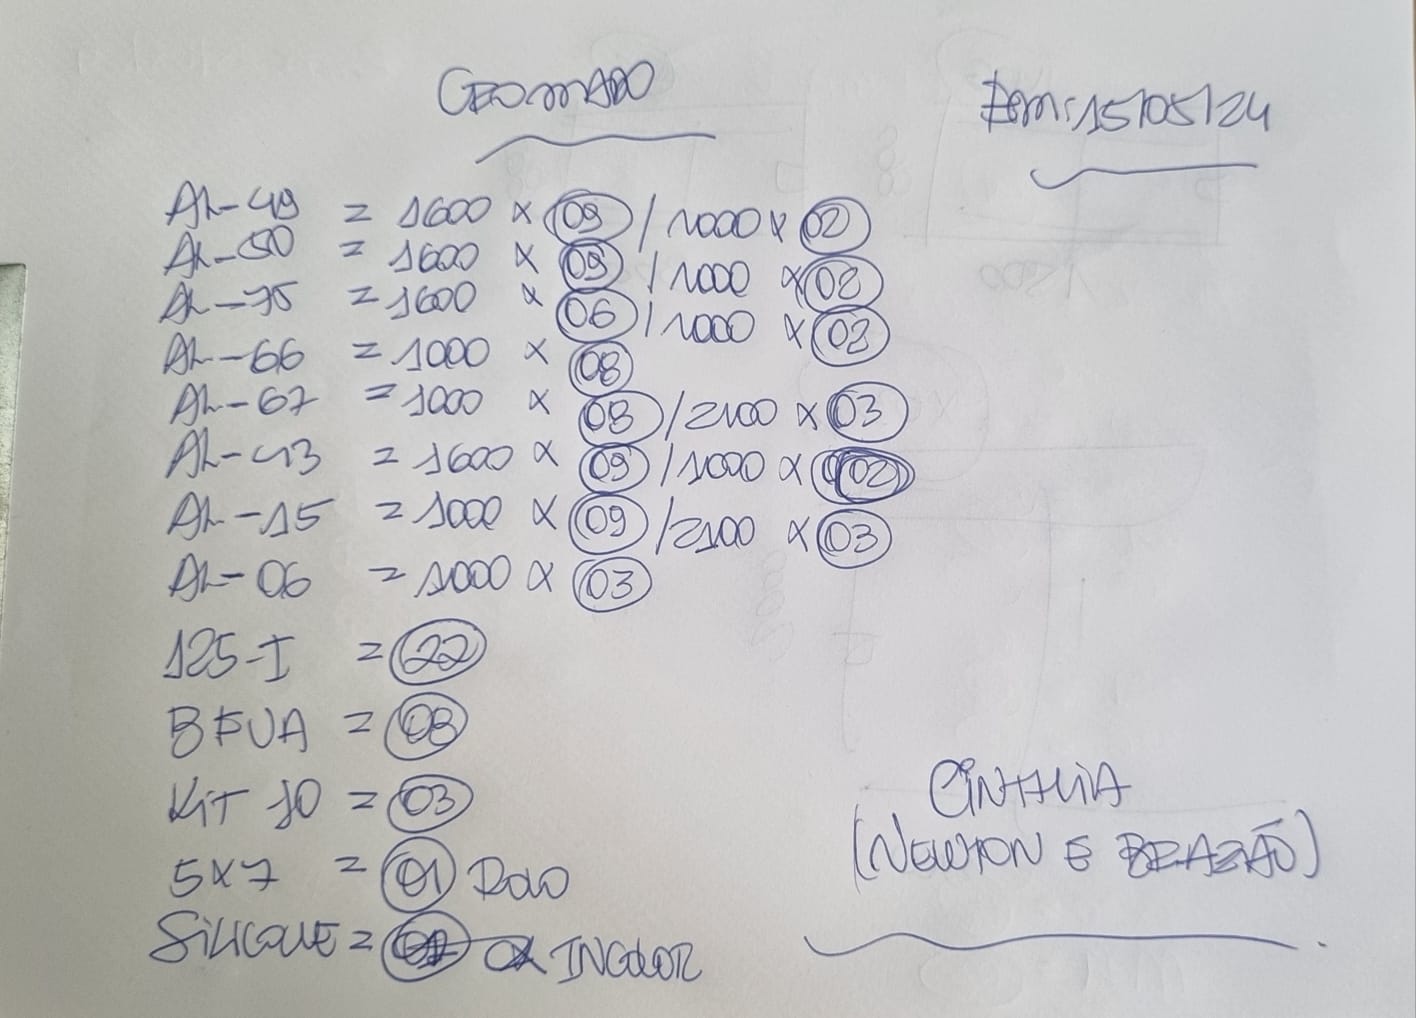 CROMADO
Rem: 15/05/24
AL-49 = 1600 x 09 / 1000 x 02
AL-50 = 1600 x 09 / 1000 x 02
AL-75 = 1600 x 06 / 1000 x 02
AL-66 = 1000 x 08
AL-67 = 1000 x 08 / 2100 x 03
AL-43 = 1600 x 09 / 1000 x 02
AL-15 = 1000 x 09 / 2100 x 03
AL-06 = 1000 x 03
125-I = 22
BFUA = 08
KIT 10 = 03
5x7 = 01 Rolo
SILICONE = INCOLOR
CINTHIA
(NEWTON E BRAZÃO)